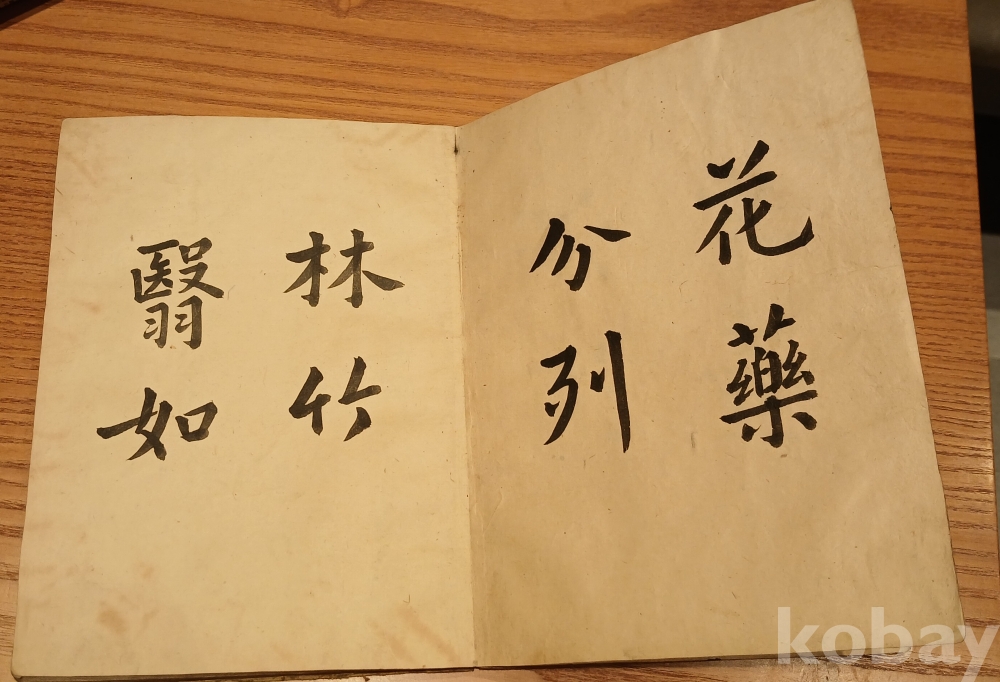 花藥
分列
林竹
翳如
kobay